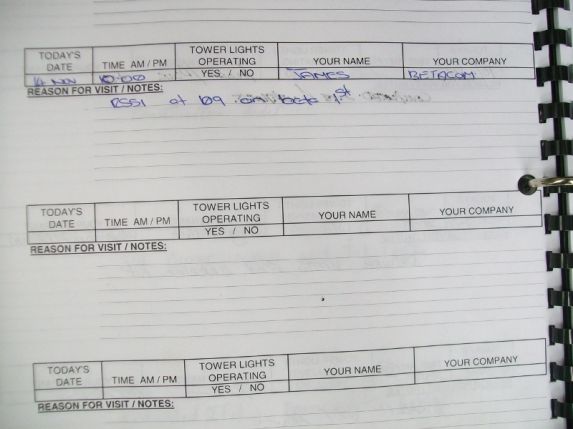 TODAY'S DATE TIME AM / PM TOWER LIGHTS OPERATING YOUR NAME YOUR COMPANY
14 NOV 10:00 YES / NO JAMES BETACOM
REASON FOR VISIT / NOTES:
RSSI at 109 on 1st
TODAY'S DATE TIME AM / PM TOWER LIGHTS OPERATING YOUR NAME YOUR COMPANY
YES / NO
REASON FOR VISIT / NOTES:
TODAY'S DATE TIME AM / PM TOWER LIGHTS OPERATING YOUR NAME YOUR COMPANY
YES / NO
REASON FOR VISIT / NOTES: